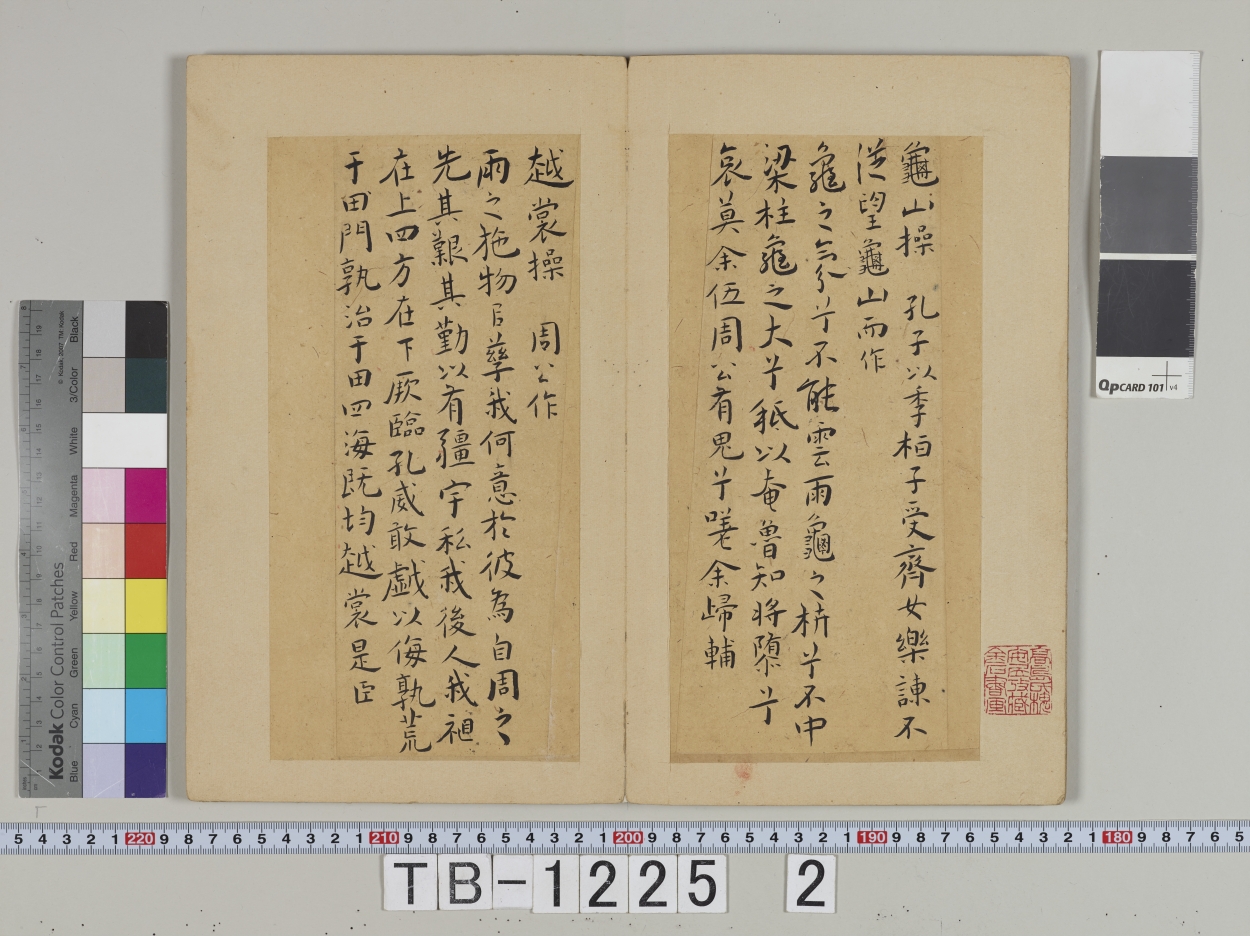 龜山操　孔子以季桓子受齊女樂諫不
從望龜山而作
龜之氛兮不能雲雨龜之枿兮不中
梁柱龜之大兮秖以奄魯知將隳兮
哀莫余伍周公有鬼兮嗟余歸輔
越裳操　周公作
雨之施物以孳我何意於彼為自周之
先其艱其勤以有疆宇私我後人我祖
在上四方在下厥臨孔威敢戲以侮孰荒
于田門孰治于田四海既均越裳是臣
Kodak Color Control Patches
© Kodak, 2007 TM: Kodak
Blue Cyan Green Yellow Red Magenta White 3/Color Black
QPCARD 101 v4
5 4 3 2 1 220 9 8 7 6 5 4 3 2 1 210 9 8 7 6 5 4 3 2 1 200 9 8 7 6 5 4 3 2 1 190 9 8 7 6 5 4 3 2 1 180 9 8 7 6 5
TB-1225 2